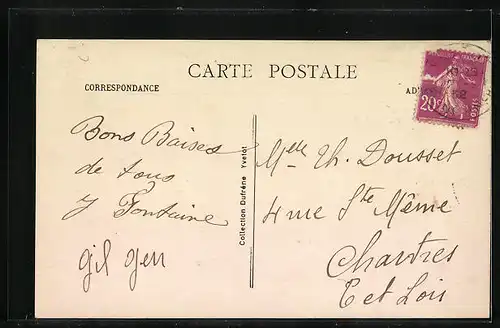 CARTE POSTALE
CORRESPONDANCE
Bons Baises
de tous
y Fontaine
gil gen
Collection Dufréne Yvetot
20c
POSTES
Mlle Th. Dousset
4 rue Ste Même
Chartres
E et Loir